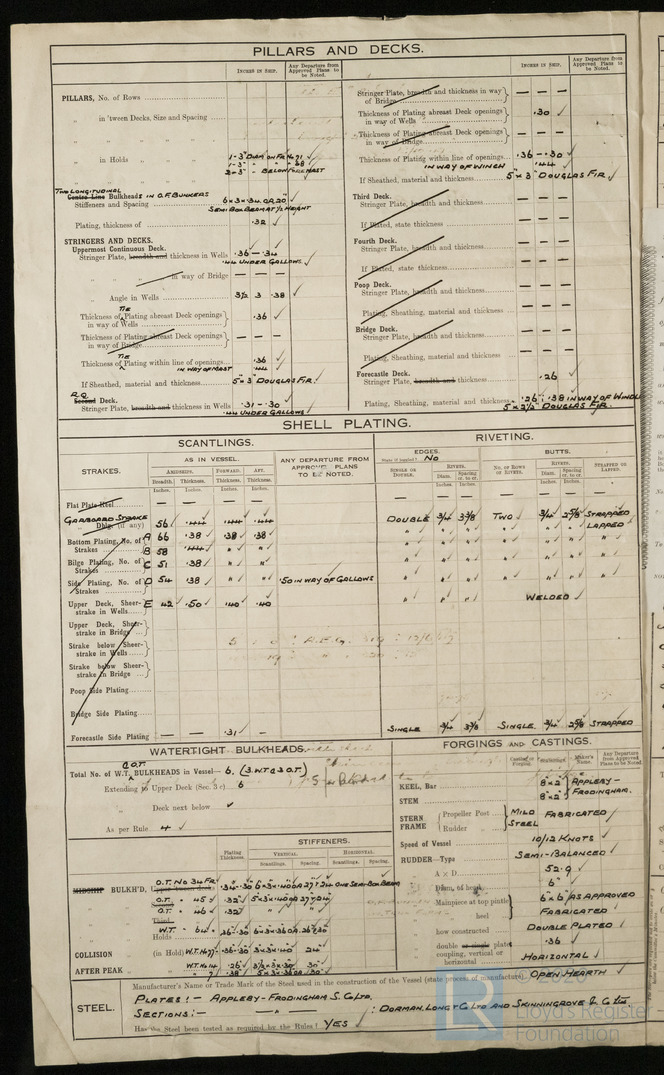 PILLARS AND DECKS.
INCHES IN SHIP. Any Departure from Approved Plans to be Noted.
PILLARS, No. of Rows
" in 'tween Decks, Size and Spacing
" in Holds " "
1-3" DIAM ON FR No 71
1-3" " " 68
2-3" - BELOW FOREMAST
TWO LONGITUDINAL
Centre Line Bulkheads IN O.F. BUNKERS
Stiffeners and Spacing 6 x 3 x .34 OA 30"
SEMI BOX BEAM AT ½ HEIGHT
Plating, thickness of .32
STRINGERS AND DECKS.
Uppermost Continuous Deck.
Stringer Plate, breadth and thickness in Wells .36 - .34
.44 UNDER GALLOWS
" in way of Bridge — — —
" Angle in Wells 3½ 3 .38
TIE
Thickness of Plating abreast Deck openings in way of Wells .36
Thickness of Plating abreast Deck openings in way of Bridge — — —
TIE
Thickness of Plating within line of openings .36
IN WAY OF MAST .44
If Sheathed, material and thickness 5" x 3" DOUGLAS FIR.
R.Q.
Second Deck.
Stringer Plate, breadth and thickness in Wells .31 - .30
.44 UNDER GALLOWS
INCHES IN SHIP. Any Departure from Approved Plans to be Noted.
Stringer Plate, breadth and thickness in way of Bridge — — —
Thickness of Plating abreast Deck openings in way of Wells .30
Thickness of Plating abreast Deck openings in way of Bridge — — —
Thickness of Plating within line of openings .36 - .30
IN WAY OF WINCH .44
If Sheathed, material and thickness 5" x 3" DOUGLAS FIR
Third Deck.
Stringer Plate, breadth and thickness — — —
If Plated, state thickness — — —
Fourth Deck.
Stringer Plate, breadth and thickness — — —
If Plated, state thickness — — —
Poop Deck.
Stringer Plate, breadth and thickness — — —
Plating, Sheathing, material and thickness — — —
Bridge Deck.
Stringer Plate, breadth and thickness — — —
Plating, Sheathing, material and thickness — — —
Forecastle Deck.
Stringer Plate, breadth and thickness .26
Plating, Sheathing, material and thickness .26 .38 IN WAY OF
5 x 2½ DOUGLAS FIR.
SHELL PLATING.
SCANTLINGS. RIVETING.
STRAKES. AS IN VESSEL. ANY DEPARTURE FROM APPROVED PLANS TO BE NOTED. EDGES. BUTTS.
State if joggled? No
AMIDSHIPS. FORWARD. AFT. SINGLE OR DOUBLE. RIVETS. NO. OF ROWS OF RIVETS. RIVETS. STRAPPED OR LAPPED.
Breadth. Thickness. Thickness. Thickness. Diam. Spacing cr. to cr. Diam. Spacing cr. to cr.
Inches. Inches. Inches. Inches. Inches. Inches. Inches. Inches.
Flat Plate Keel — — — —
GARBOARD STRAKE
Dblg. (if any) 56 .44 .44 .44 DOUBLE 3/4 3 3/8 TWO 3/4 2 5/8 STRAPPED
Bottom Plating, No. of Strakes A 66 .38 .38 .38 " " " " " " LAPPED
B 58 .44 " " " " " " " " "
Bilge Plating, No. of Strakes C 51 .38 " " " " " " " " "
Side Plating, No. of Strakes D 54 .38 " " .50 IN WAY OF GALLOWS " " " " " " "
Upper Deck, Sheerstrake in Wells E 42 .50 .40 .40 " " " WELDED
Upper Deck, Sheerstrake in Bridge
Strake below Sheerstrake in Wells
Strake below Sheerstrake in Bridge
Poop Side Plating
Bridge Side Plating
Forecastle Side Plating — — .31 — SINGLE 3/4 3 3/8 SINGLE. 3/4 2 5/8 STRAPPED
WATERTIGHT BULKHEADS.
& O.T.
Total No. of W.T. BULKHEADS in Vessel— 6. (3 W.T & 3 O.T)
Extending to Upper Deck (Sec. 3 c) 6
" Deck next below
As per Rule 4
Plating Thickness. STIFFENERS.
VERTICAL. HORIZONTAL.
Scantlings. Spacing. Scantlings. Spacing.
MIDSHIP BULKH'D, O.T. No 34 FR .34-.30 6x3x.40 OA 27 & 24 ONE SEMI-BOX BEAM
O.T. " 45 .32 5x3x.40 OA 27 & 24
O.T. " 46 .32 " "
Third
W.T. " 64
Holds .36-.30 6x3x.36 OA. 26 & 30
COLLISION (in Hold) W.T. No 77 .36-.30 3x3x.40 24
AFTER PEAK W.T. No 14 .26 3½x3x.30 30"
" 7 .38 5x3x.36 OA 30"
FORGINGS AND CASTINGS.
Casting or Forging. Scantlings. Maker's Name. Any Departure from Approved Plans to be Noted.
KEEL, Bar 8" x 2" APPLEBY-FRODINGHAM.
STEM 8" x 2"
STERN FRAME Propeller Post MILD STEEL FABRICATED
Rudder "
Speed of Vessel 10/12 KNOTS
RUDDER—Type SEMI-BALANCED
A × D 52.9
Diam. of head 6"
Mainpiece at top pintle 6" x 6" AS APPROVED
" heel FABRICATED
how constructed DOUBLE PLATED
double or single plates .36
coupling, vertical or horizontal HORIZONTAL
STEEL. Manufacturer's Name or Trade Mark of the Steel used in the construction of the Vessel (state process of manufacture) OPEN HEARTH
PLATES :- APPLEBY-FRODINGHAM S. Co LTD.
SECTIONS :- — " — : DORMAN, LONG & Co LTD AND SKINNINGROVE
Has the Steel been tested as required by the Rules? YES
LR
© 2020
Lloyd's Register
Foundation